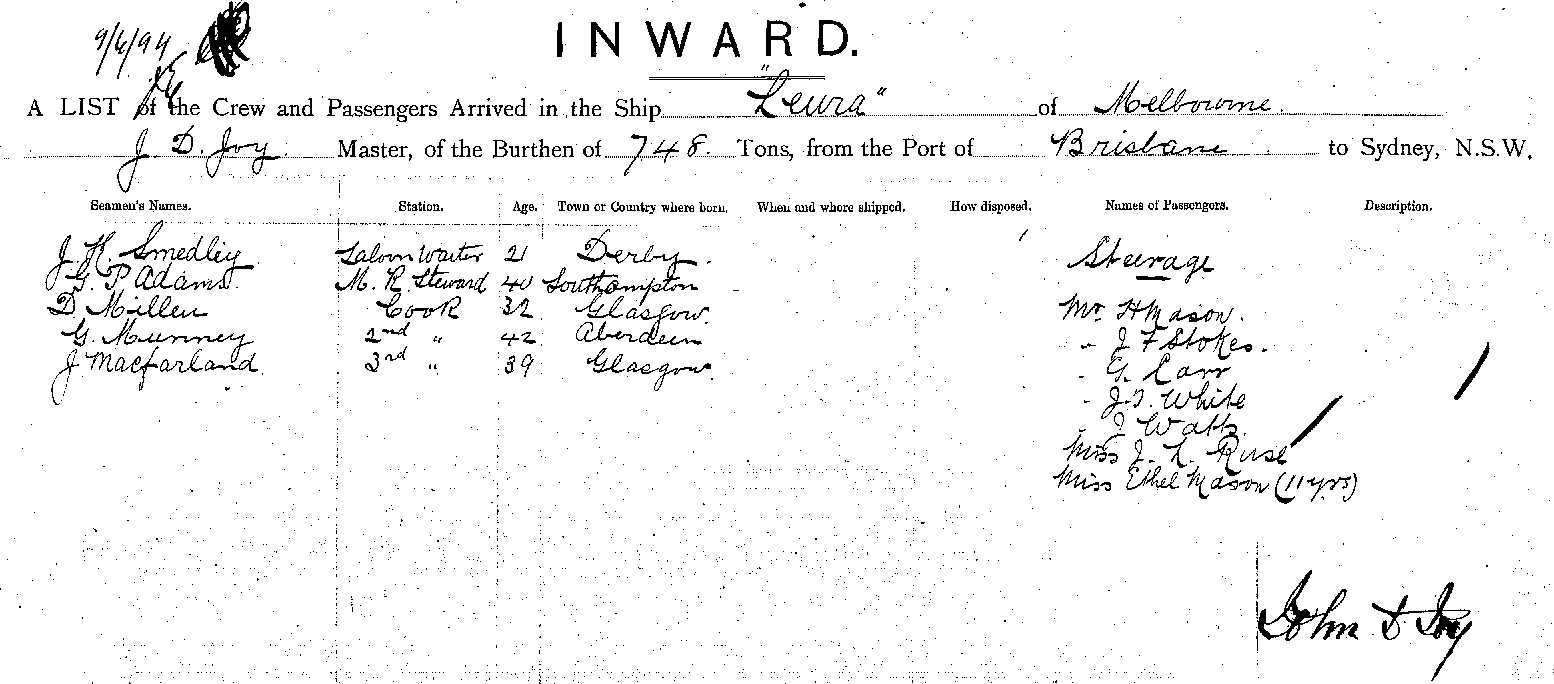 9/6/94
INWARD.
A LIST of the Crew and Passengers Arrived in the Ship "Leura" of Melbourne.
J. D. Joy Master, of the Burthen of 748. Tons, from the Port of Brisbane to Sydney, N.S.W.
Seamen's Names. Station. Age. Town or Country where born. When and where shipped. How disposed. Names of Passengers. Description.
J. H. Smedley Saloon Waiter 21 Derby.
G. P Adams. M. R. Steward 40 Southampton
D. Millen Cook 32 Glasgow.
G. Munney 2nd " 42 Aberdeen
J Macfarland 3rd " 39 Glasgow.
Steerage
Mr. H Mason.
- J F Stokes.
- G. Carr
- J. T. White
- J Watts.
Miss J. L. Ruse
Miss Ethel Mason (11 yrs)
John D Joy